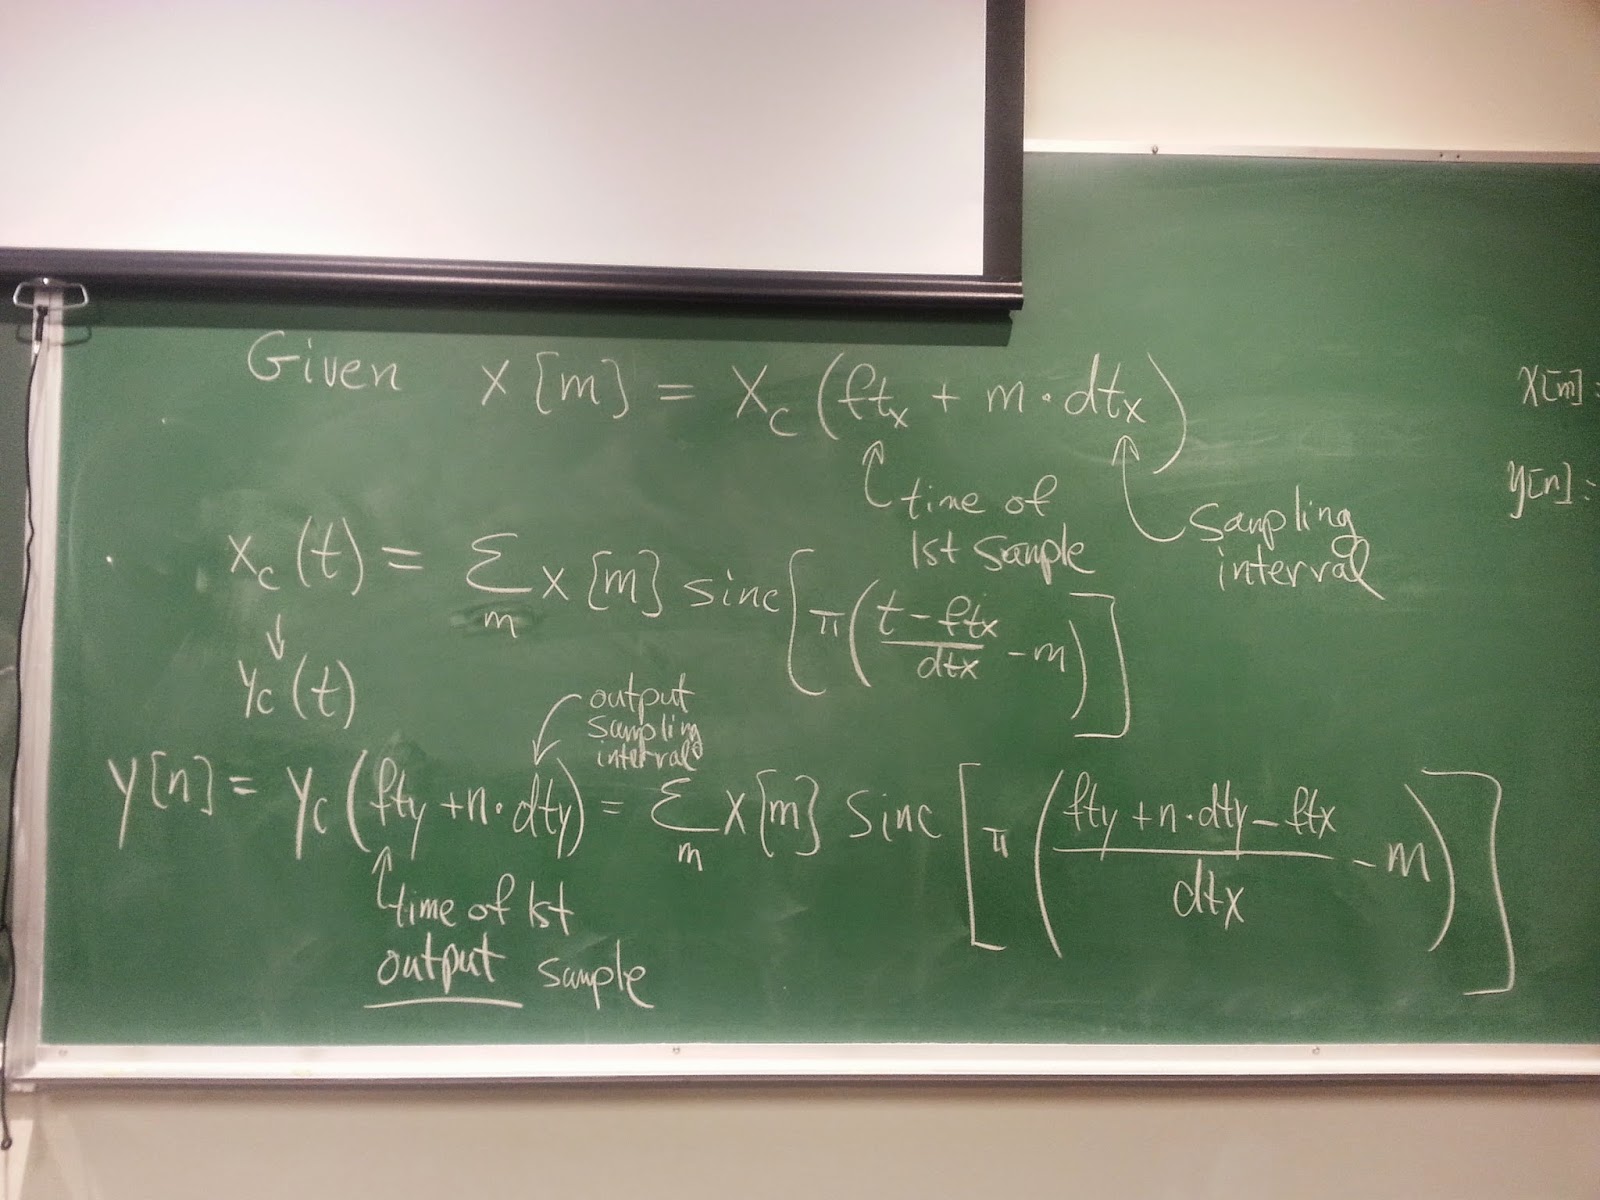 Given x[m] = x_c (ft_x + m · dt_x)
time of
1st sample
sampling
interval
x_c (t) = Σ_m x[m] sinc [π ((t - ftx)/dtx - m)]
↓
y_c (t)
output
sampling
interval
y[n] = y_c (fty + n · dty) = Σ_m x[m] sinc [π ((fty + n · dty - ftx)/dtx - m)]
time of 1st
output sample
x[m] :
y[n] :